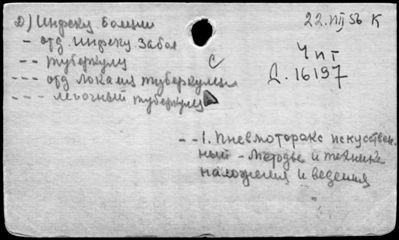 2) Инфекц болезни
22.VIII 56 К
- отд. инфекц забол
-- туберкулез
Ч п I
Д. 16197
--- отд локализ туберкулеза
--- легочный туберкулез
--1. Пневмоторакс искусствен-
ный - методы и техника
наложения и ведения